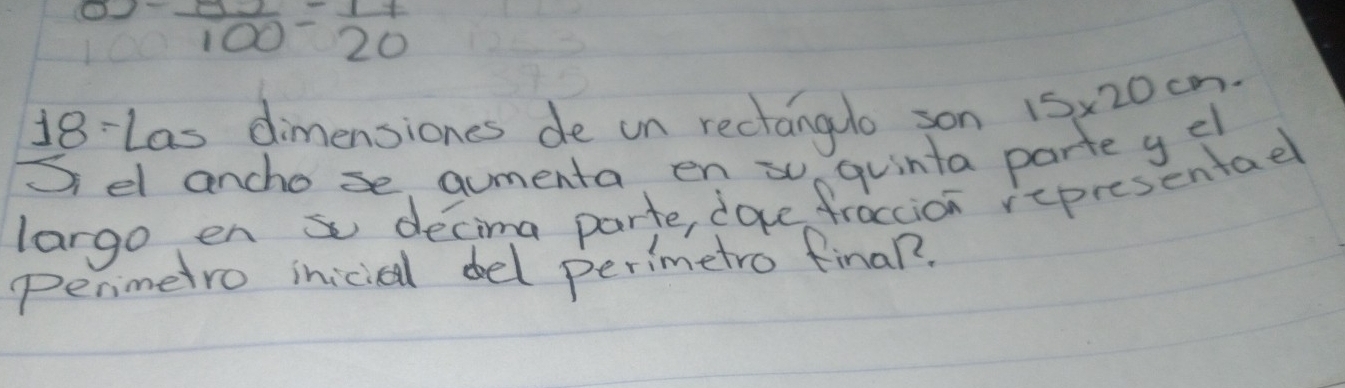 100 20
18-Las dimensiones de un rectángulo son 15x20 cm.
Si el ancho se aumenta en su quinta parte y el
largo en su décima parte, ¿que fracción representa el
perimetro inicial del perímetro final?.